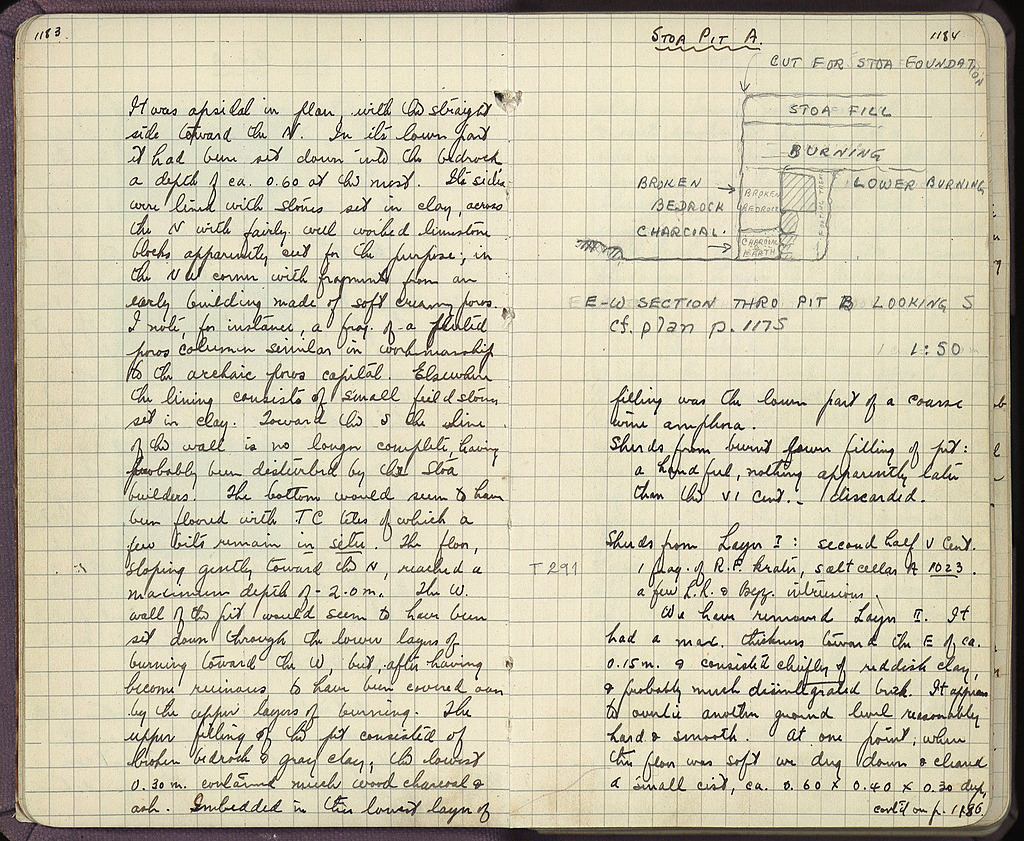 1183
It was apsidal in plan, with the straight
side toward the N. In its lower part
it had been set down into the bedrock
a depth of ca. 0.60 at the most. Its sides
were lined with stones set in clay, across
the N with fairly well worked limestone
blocks apparently cut for the purpose; in
the NW corner with fragments from an
early building made of soft creamy poros.
I note, for instance, a frag. of a fluted
poros column similar in workmanship
to the archaic poros capital. Elsewhere
the lining consists of small field stones
set in clay. Toward the S the line
of the wall is no longer complete, having
probably been disturbed by the Stoa
builders. The bottom would seem to have
been floored with TC tiles of which a
few bits remain in situ. The floor,
sloping gently toward the N, reached a
maximum depth of - 2.0 m. The W.
wall of the pit would seem to have been
set down through the lower layers of
burning toward the W, but, after having
become ruinous to have been covered over
by the upper layers of burning. The
upper filling of the pit consisted of
broken bedrock & gray clay; the lowest
0.30 m. contained much wood charcoal &
ash. Imbedded in this lowest layer of
STOA PIT A.
1184
CUT FOR STOA FOUNDATION
STOA FILL
BURNING
BROKEN
BEDROCK
BROKEN
BEDROCK
LOWER BURNING
CHARCOAL
CHARCOAL
EARTH
E-W SECTION THRO PIT B LOOKING S
cf. plan p. 1175
1:50
filling was the lower part of a coarse
wine amphora.
Sherds from burnt lower filling of pit:
a handful, nothing apparently later
than the VI cent. - discarded.
Sherds from Layer I: second half V Cent.
T 291
1 frag. of R.F. krater, salt cellar A 1023.
a few L.R. & Byz. intrusions.
We have removed Layer II. It
had a max. thickness toward the E of ca.
0.15 m. & consisted chiefly of reddish clay,
& probably much disintegrated brick. It appears
to overlie another ground level reasonably
hard & smooth. At one point, where
this floor was soft we dug down & cleared
a small cist, ca. 0.60 x 0.40 x 0.30 deep,
cont'd on p. 1186.